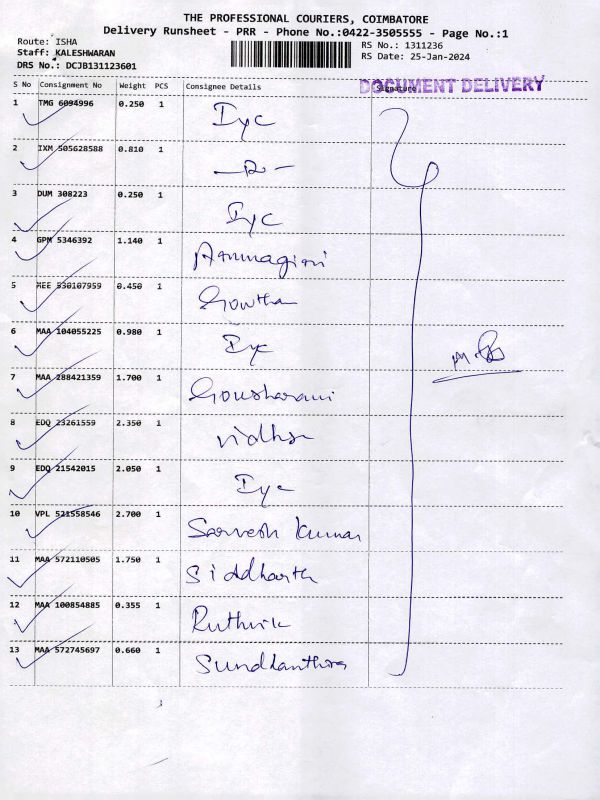 THE PROFESSIONAL COURIERS, COIMBATORE
Delivery Runsheet - PRR - Phone No.:0422-3505555 - Page No.:1
Route: ISHA
Staff: KALESHWARAN
DRS No.: DCJB131123601
RS No.: 1311236
RS Date: 25-Jan-2024
DOCUMENT DELIVERY
S No Consignment No Weight PCS Consignee Details Signature
1 TMG 6094996 0.250 1 Iyc
2 IXM 505628588 0.810 1 —D—
3 DUM 308223 0.250 1 Iyc
4 GPM 5346392 1.140 1 Arunagiri
5 MEE 530107959 0.450 1 Gowtham
6 MAA 104055225 0.980 1 Iyc
7 MAA 288421359 1.700 1
8 EDQ 23261559 2.350 1 Vidhya
9 EDQ 21542015 2.050 1 Iyc
10 VPL 521558546 2.700 1 Sarvesh Kumar
11 MAA 572110505 1.750 1 Siddharth
12 MAA 100854885 0.355 1 Ruthvik
13 MAA 572745697 0.660 1